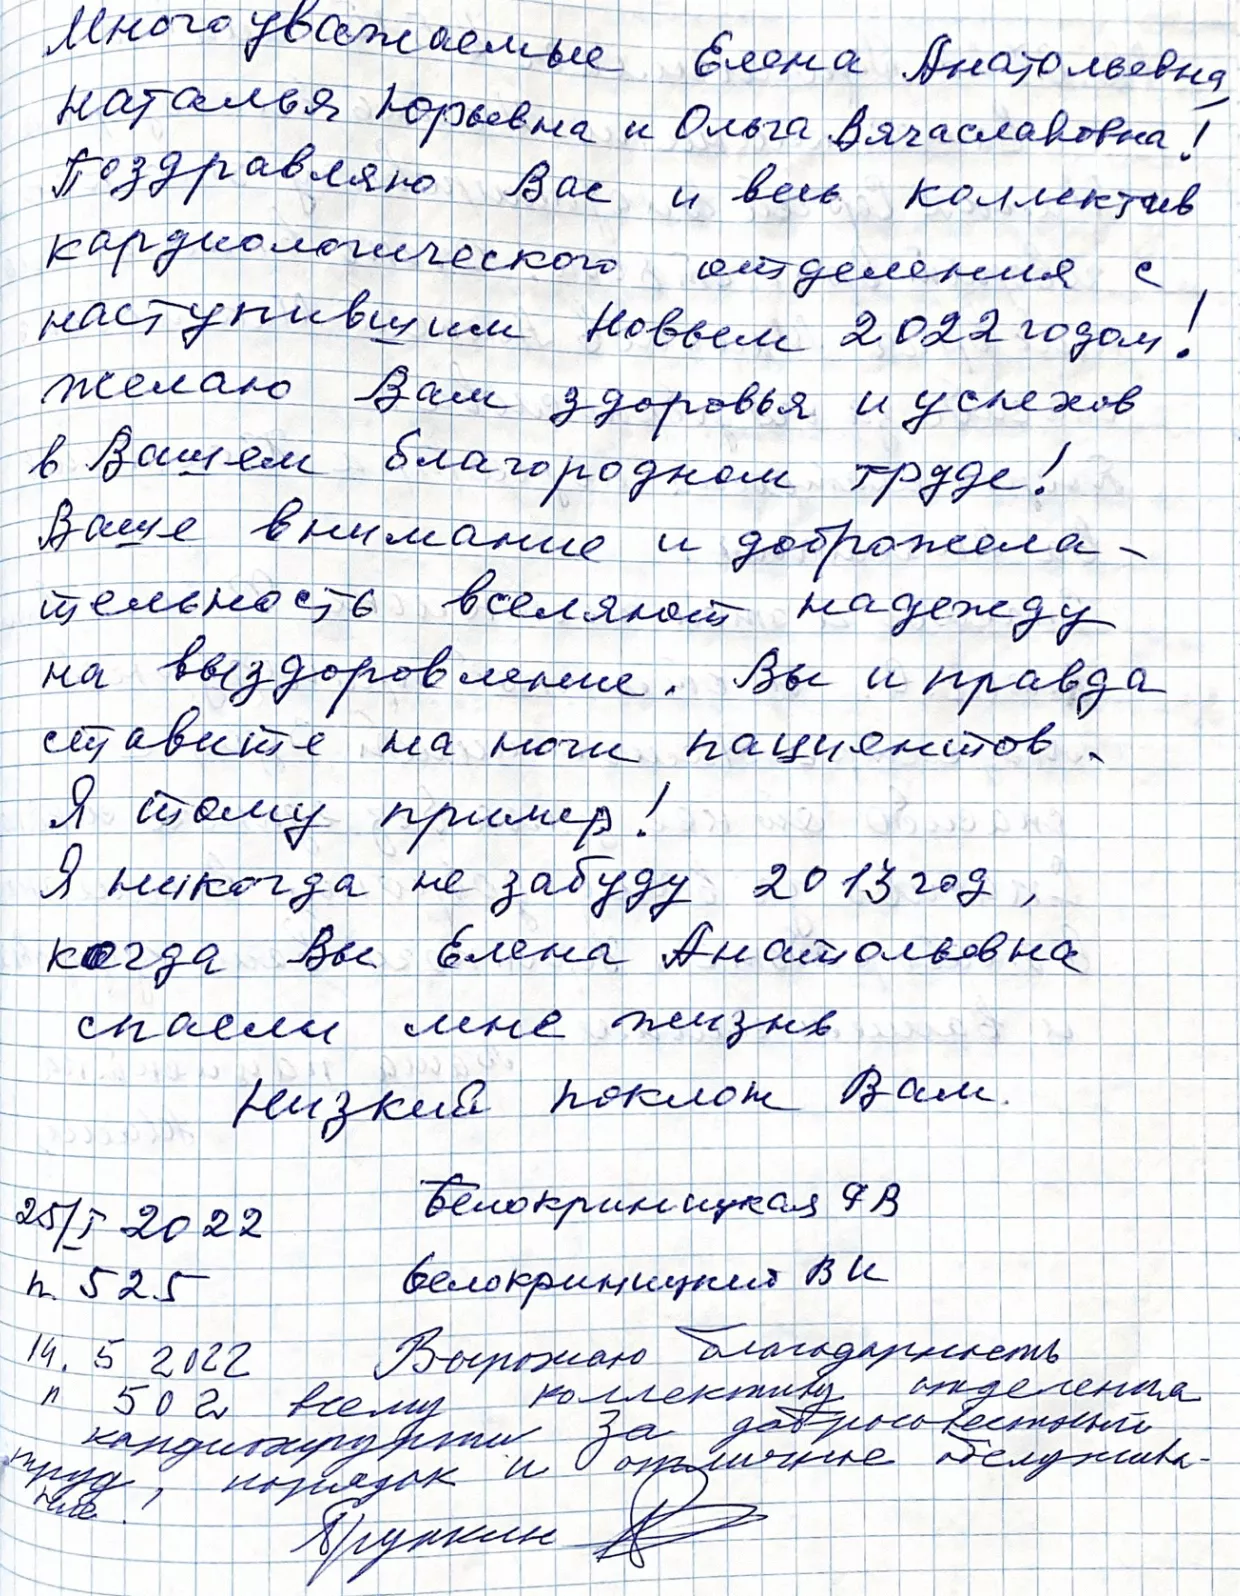 Многоуважаемые Елена Анатольевна,
Наталья Юрьевна и Ольга Вячаславовна!
Поздравляю Вас и весь коллектив
кардиологического отделения с
наступившим Новым 2022 годом!
Желаю Вам здоровья и успехов
в Вашем благородном труде!
Ваше внимание и доброжела-
тельность вселяют надежду
на выздоровление. Вы и правда
ставите на ноги пациентов.
Я тому пример!
Я никогда не забуду 2013 год,
когда Вы Елена Анатольевна
спасли мне жизнь
Низкий поклон Вам.
25/I 2022 Белокриницкая ФВ
п. 525 Белокриницкий ВИ
14. 5 2022 Выражаю благодарность
п 502 всему коллективу отделения
кардиохирургии за добросовестный
труд, порядок и отличное обслужива-
ние!